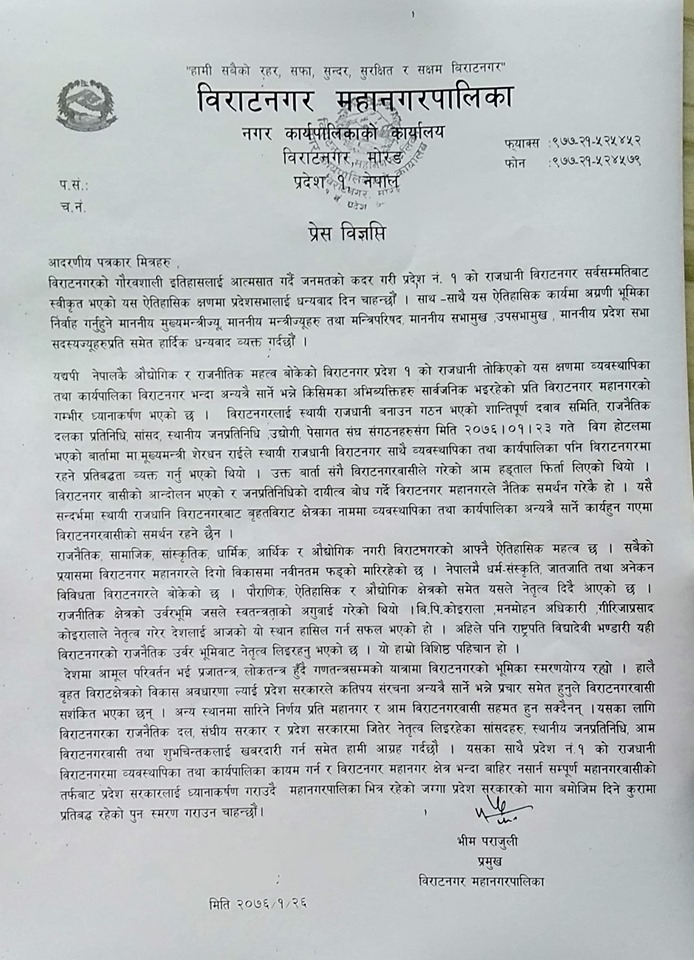 "हामी सबैको रहर, सफा, सुन्दर, सुरक्षित र सक्षम विराटनगर"
विराटनगर महानगरपालिका
नगर कार्यपालिकाको कार्यालय
विराटनगर, मोरङ
प्रदेश १, नेपाल
फ्याक्स :९७७-२१-५२५४५२
फोन :९७७-२१-५२४५७९
प.सं.:
च.नं.
प्रेस विज्ञप्ति
आदरणीय पत्रकार मित्रहरु ,
विराटनगरको गौरवशाली इतिहासलाई आत्मसात गर्दै जनमतको कदर गरी प्रदेश नं. १ को राजधानी विराटनगर सर्वसम्मतिबाट
स्वीकृत भएको यस ऐतिहासिक क्षणमा प्रदेशसभालाई धन्यवाद दिन चाहन्छौं । साथ -साथै यस ऐतिहासिक कार्यमा अग्रणी भूमिका
निर्वाह गर्नुहुने माननीय मुख्यमन्त्रीज्यू माननीय मन्त्रीज्यूहरु तथा मन्त्रिपरिषद, माननीय सभामुख ,उपसभामुख , माननीय प्रदेश सभा
सदस्यज्यूहरुप्रति समेत हार्दिक धन्यवाद व्यक्त गर्दछौं ।
यद्यपी नेपालकै औद्योगिक र राजनीतिक महत्व बोकेको विराटनगर प्रदेश १ को राजधानी तोकिएको यस क्षणमा व्यवस्थापिका
तथा कार्यपालिका विराटनगर भन्दा अन्यत्रै सार्ने भन्ने किसिमका अभिब्यक्तिहरु सार्वजनिक भइरहेको प्रति विराटनगर महानगरको
गम्भीर ध्यानाकर्षण भएको छ । विराटनगरलाई स्थायी राजधानी बनाउन गठन भएको शान्तिपूर्ण दबाव समिति, राजनैतिक
दलका प्रतिनिधि, सांसद, स्थानीय जनप्रतिनिधि ,उद्योगी, पेसागत संघ संगठनहरुसंग मिति २०७६।०१।२३ गते विग होटलमा
भएको बार्तामा मा मुख्यमन्त्री शेरधन राईले स्थायी राजधानी विराटनगर साथै व्यवस्थापिका तथा कार्यपालिका पनि विराटनगरमा
रहने प्रतिबद्धता व्यक्त गर्नु भएको थियो । उक्त बार्ता संगै विराटनगरवासीले गरेको आम हड्ताल फिर्ता लिएको थियो ।
विराटनगर वासीको आन्दोलन भएको र जनप्रतिनिधिको दायीत्व बोध गर्दै विराटनगर महानगरले नैतिक समर्थन गरेकै हो । यसै
सन्दर्भमा स्थायी राजधानि विराटनगरबाट बृहतविराट क्षेत्रका नाममा व्यवस्थापिका तथा कार्यपालिका अन्यत्रै सार्ने कार्यहुन गएमा
विराटनगरवासीको समर्थन रहने छैन ।
राजनैतिक, सामाजिक, सांस्कृतिक, धार्मिक, आर्थिक र औद्योगिक नगरी विराटनगरको आफ्नै ऐतिहासिक महत्व छ । सबैको
प्रयासमा विराटनगर महानगरले दिगो विकासमा नवीनतम फड्को मारिरहेको छ । नेपालमै धर्म-संस्कृति, जातजाति तथा अनेकन
विविधता विराटनगरले बोकेको छ । पौराणिक, ऐतिहासिक र औद्योगिक क्षेत्रको समेत यसले नेतृत्व दिदै आएको छ ।
राजनीतिक क्षेत्रको उर्वरभूमि जसले स्वतन्त्रताको अगुवाई गरेको थियो ।बि.पि.कोइराला ,मनमोहन अधिकारी ,गीरिजाप्रसाद
कोइरालाले नेतृत्व गरेर देशलाई आजको यो स्थान हासिल गर्न सफल भएको हो । अहिले पनि राष्ट्रपति विद्यादेवी भण्डारी यही
विराटनगरको राजनैतिक उर्वर भूमिबाट नेतृत्व लिइरहनु भएको छ । यो हाम्रो विशिष्ठ पहिचान हो ।
देशमा आमूल परिवर्तन भई प्रजातन्त्र, लोकतन्त्र हुँदै गणतन्त्रसम्मको यात्रामा विराटनगरको भूमिका स्मरणयोग्य रह्यो । हालै
बृहत विराटक्षेत्रको विकास अवधारणा ल्याई प्रदेश सरकारले कतिपय संरचना अन्यत्रै सार्ने भन्ने प्रचार समेत हुनुले विराटनगरवासी
सशंकित भएका छन् । अन्य स्थानमा सारिने निर्णय प्रति महानगर र आम विराटनगरवासी सहमत हुन सक्दैनन् ।यसका लागि
विराटनगरका राजनैतिक दल, संघीय सरकार र प्रदेश सरकारमा जितेर नेतृत्व लिइरहेका सांसदहरु, स्थानीय जनप्रतिनिधि, आम
विराटनगरवासी तथा शुभचिन्तकलाई खबरदारी गर्न समेत हामी आग्रह गर्दछौं । यसका साथै प्रदेश नं.१ को राजधानी
विराटनगरमा व्यवस्थापिका तथा कार्यपालिका कायम गर्न र विराटनगर महानगर क्षेत्र भन्दा बाहिर नसार्न सम्पूर्ण महानगरवासीको
तर्फबाट प्रदेश सरकारलाई ध्यानाकर्षण गराउदै महानगरपालिका भित्र रहेको जग्गा प्रदेश सरकारको माग बमोजिम दिने कुरामा
प्रतिबद्ध रहेको पुन स्मरण गराउन चाहन्छौं।
भीम पराजुली
प्रमुख
विराटनगर महानगरपालिका
मिति २०७६/१/२६